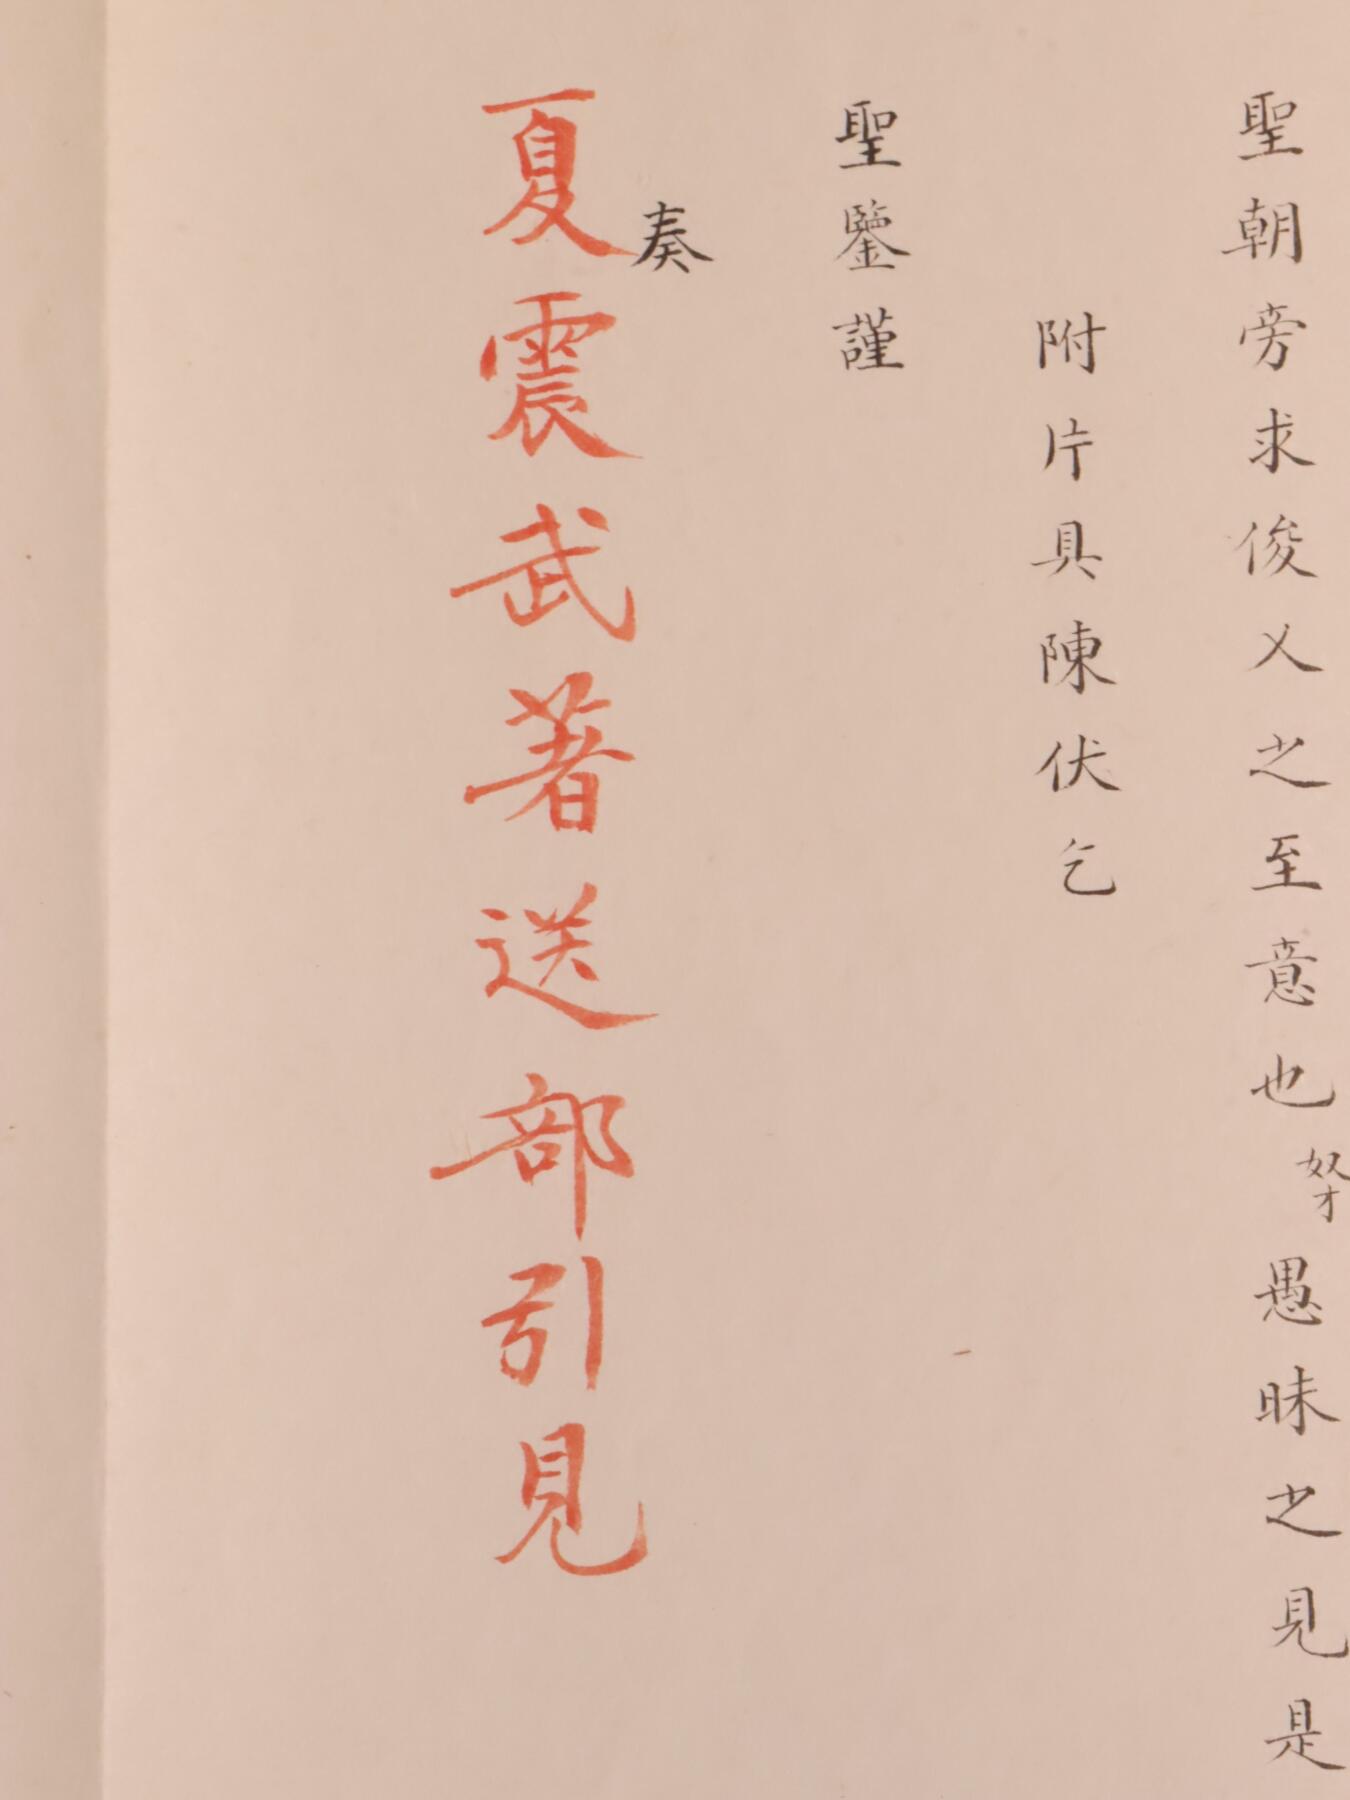 聖朝旁求俊乂之至意也奴才愚昧之見是
附片具陳伏乞
聖鑒謹
奏
夏震武著送部引見